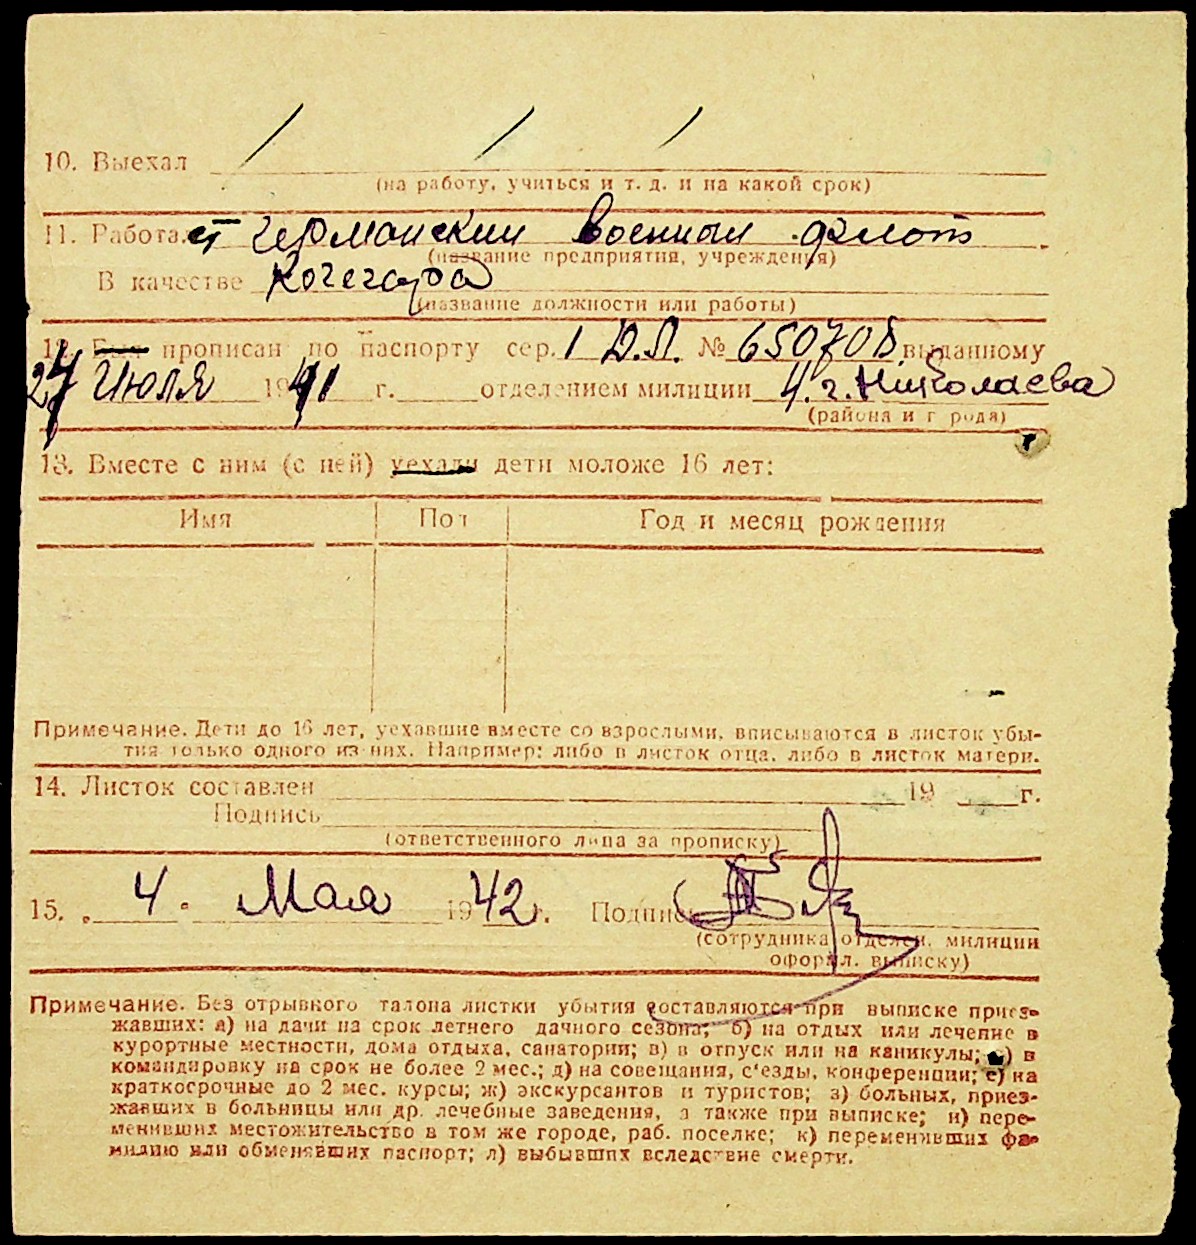 10. Выехал
(на работу, учиться и т. д. и на какой срок)
11. Работает германский военный флот
(название предприятия, учреждения)
В качестве Кочегара
(название должности или работы)
12. Был прописан по паспорту сер. 1 Д.Л. № 650708 выданному
24 Июля 1941 г. отделением милиции 4. г. Николаева
(района и города)
13. Вместе с ним (с ней) уехали дети моложе 16 лет:
Имя Пол Год и месяц рождения
Примечание. Дети до 16 лет, уехавшие вместе со взрослыми, вписываются в листок убы-
тия только одного из них. Например: либо в листок отца, либо в листок матери.
14. Листок составлен 19 г.
Подпись
(ответственного лица за прописку)
15. „ 4 " Мая 1942 г. Подпись
(сотрудника отделен. милиции
оформл. выписку)
Примечание. Без отрывного талона листки убытия составляются при выписке приез-
жавших: а) на дачи на срок летнего дачного сезона; б) на отдых или лечение в
курортные местности, дома отдыха, санатории; в) в отпуск или на каникулы; г) в
командировку на срок не более 2 мес.; д) на совещания, с'езды, конференции; е) на
краткосрочные до 2 мес. курсы; ж) экскурсантов и туристов; з) больных, приез-
жавших в больницы или др. лечебные заведения, а также при выписке; и) пере-
менивших местожительство в том же городе, раб. поселке; к) переменивших фа-
милию или обменявших паспорт; л) выбывших вследствие смерти.